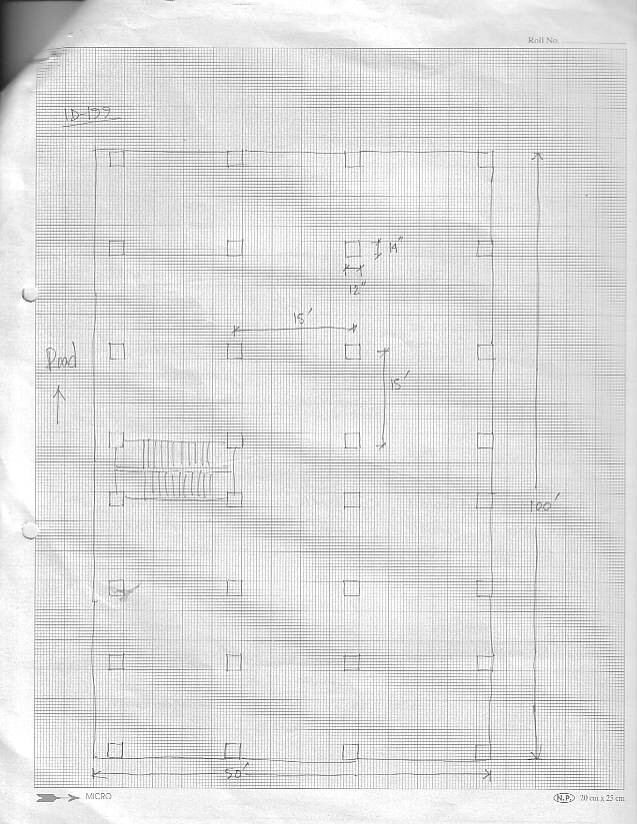 Roll No.
ID-199
14"
12"
15'
Road
15'
100'
50'
MICRO
N.P. 20 cm x 25 cm